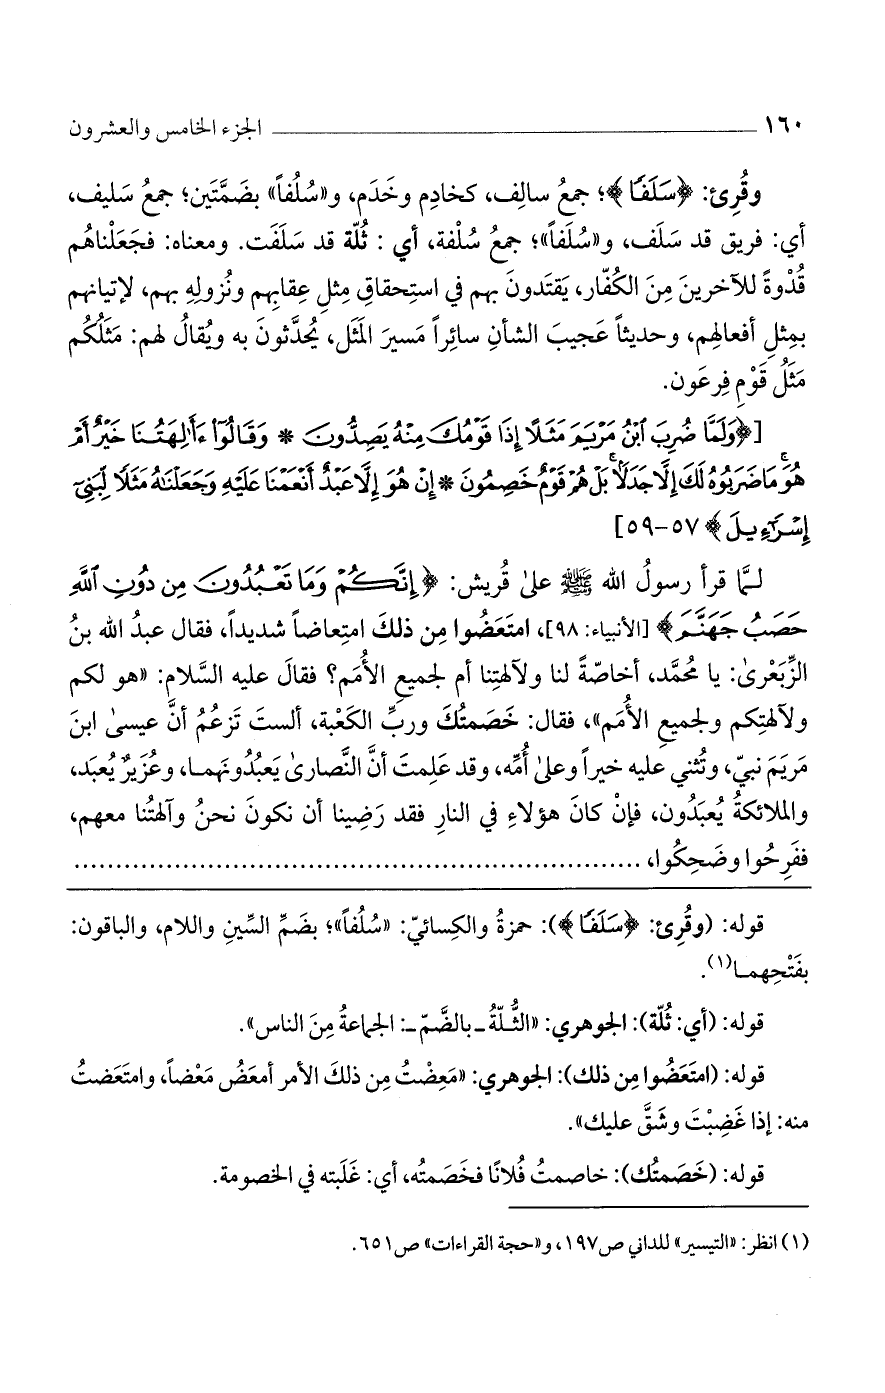 ١٦٠ ــــــــــــــــــــ الجزء الخامس والعشرون
وقُرِئ: ﴿سَلَفًا﴾؛ جمعُ سالِف، كخادِم وخَدَم، و«سُلُفاً» بضَمَّتَين؛ جمعُ سَليف،
أي: فريق قد سَلَف، و«سُلَفاً»؛ جمعُ سُلْفة، أي : ثُلّة قد سَلَفَت. ومعناه: فجَعَلْناهُم
قُدْوةً للآخرينَ مِنَ الكُفّار، يَقتَدونَ بهم في استِحقاقِ مِثلِ عِقابِهم ونُزولِهِ بهم، لإتيانهم
بمِثلِ أفعالِهم، وحديثاً عَجيبَ الشأنِ سائِراً مَسيرَ المَثَل، يُحدَّثونَ به ويُقالُ لهم: مَثَلُكُم
مَثَلُ قَوْمِ فِرعَون.
[﴿وَلَمَّا ضُرِبَ ٱبْنُ مَرْيَمَ مَثَلًا إِذَا قَوْمُكَ مِنْهُ يَصِدُّونَ * وَقَالُوٓا۟ ءَأَٰلِهَتُنَا خَيْرٌ أَمْ
هُوَ ۚ مَا ضَرَبُوهُ لَكَ إِلَّا جَدَلًۢا ۚ بَلْ هُمْ قَوْمٌ خَصِمُونَ * إِنْ هُوَ إِلَّا عَبْدٌ أَنْعَمْنَا عَلَيْهِ وَجَعَلْنَٰهُ مَثَلًا لِّبَنِىٓ
إِسْرَٰٓءِيلَ﴾ ٥٧-٥٩]
لـمَّا قرأ رسولُ الله ﷺ علىٰ قُريش: ﴿إِنَّكُمْ وَمَا تَعْبُدُونَ مِن دُونِ ٱللَّهِ
حَصَبُ جَهَنَّمَ﴾ [الأنبياء: ٩٨]، امتَعَضُوا مِن ذلكَ امتِعاضاً شديداً، فقال عبدُ الله بنُ
الزِّبَعْرىٰ: يا مُحمَّد، أخاصّةً لنا ولآلهتِنا أم لجميعِ الأُمَم؟ فقالَ عليه السَّلام: «هو لكم
ولآلهتِكم ولجميعِ الأُمَم»، فقال: خَصَمتُكَ وربِّ الكَعْبة، ألستَ تَزعُمُ أنَّ عيسىٰ ابنَ
مَريَمَ نبيّ، وتُثني عليه خيراً وعلىٰ أُمِّه، وقد عَلِمتَ أنَّ النَّصارىٰ يَعبُدُونَهما، وعُزَيرٌ يُعبَد،
والملائكةُ يُعبَدُون، فإنْ كانَ هؤلاءِ في النارِ فقد رَضِينا أن نكونَ نحنُ وآلهتُنا معهم،
ففَرِحُوا وضَحِكُوا، ................................................................
قوله: (وقُرِئ: ﴿سَلَفًا﴾): حمزةُ والكِسائيّ: «سُلُفاً»؛ بضَمِّ السِّينِ واللام، والباقون:
بفَتْحِهما(١).
قوله: (أي: ثُلّة): الجوهري: «الثُّلّةُ ـ بالضَّمّ ـ: الجماعةُ مِنَ الناس».
قوله: (امتَعَضُوا مِن ذلك): الجوهري: «مَعِضْتُ مِن ذلكَ الأمر أمعَضُ مَعْضاً، وامتَعَضتُ
منه: إذا غَضِبْتَ وشَقَّ عليك».
قوله: (خَصَمتُك): خاصمتُ فُلانًا فخَصَمتُه، أي: غَلَبته في الخصومة.
(١) انظر: «التيسير» للداني ص١٩٧، و«حجة القراءات» ص٦٥١.